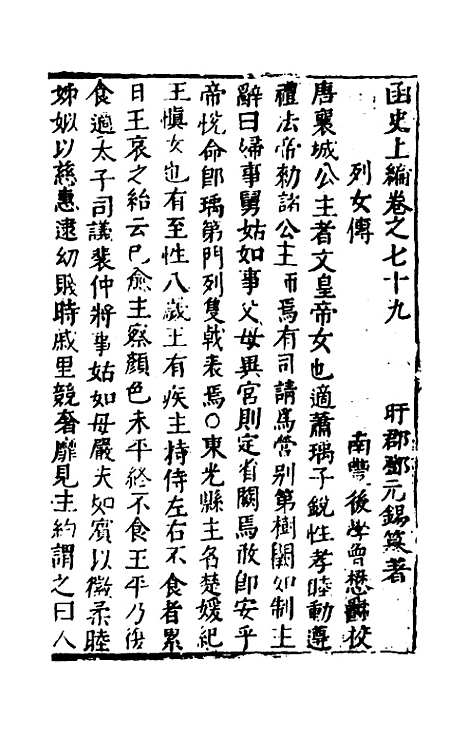 函史上編卷之七十九　　盱郡鄧元錫纂著
列女傳　　南豐後學曾懋爵校
唐襄城公主者文皇帝女也適蕭瑀子銳性孝睦動遵
禮法帝勑諸公主而焉有司請爲營别第樹闕如制主
辭曰婦事舅姑如事父母異宮則定省闕焉敢即安乎
帝悅命即瑀第門列雙戟表焉○東光縣主名楚媛紀
王愼女也有至性八歲王有疾主持侍左右不食者累
日王哀之紿云巳愈主察顏色未平終不食王平乃復
食適太子司議裴仲將事姑如母嚴夫如賓以徽柔睦
娣姒以慈惠逮幼賤時戚里競奢靡見主約謂之曰人